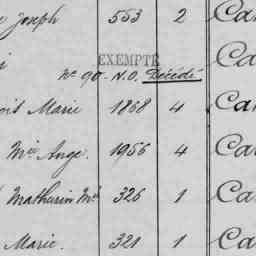 Joseph 553 2 Ca
Ca
EXEMPTÉ
No 90 - N.O. Décédé
Marie 1868 4 Ca
Mie Ange. 1956 4 Ca
Mathurin Me 326 1 Ca
Marie. 321 1 Ca